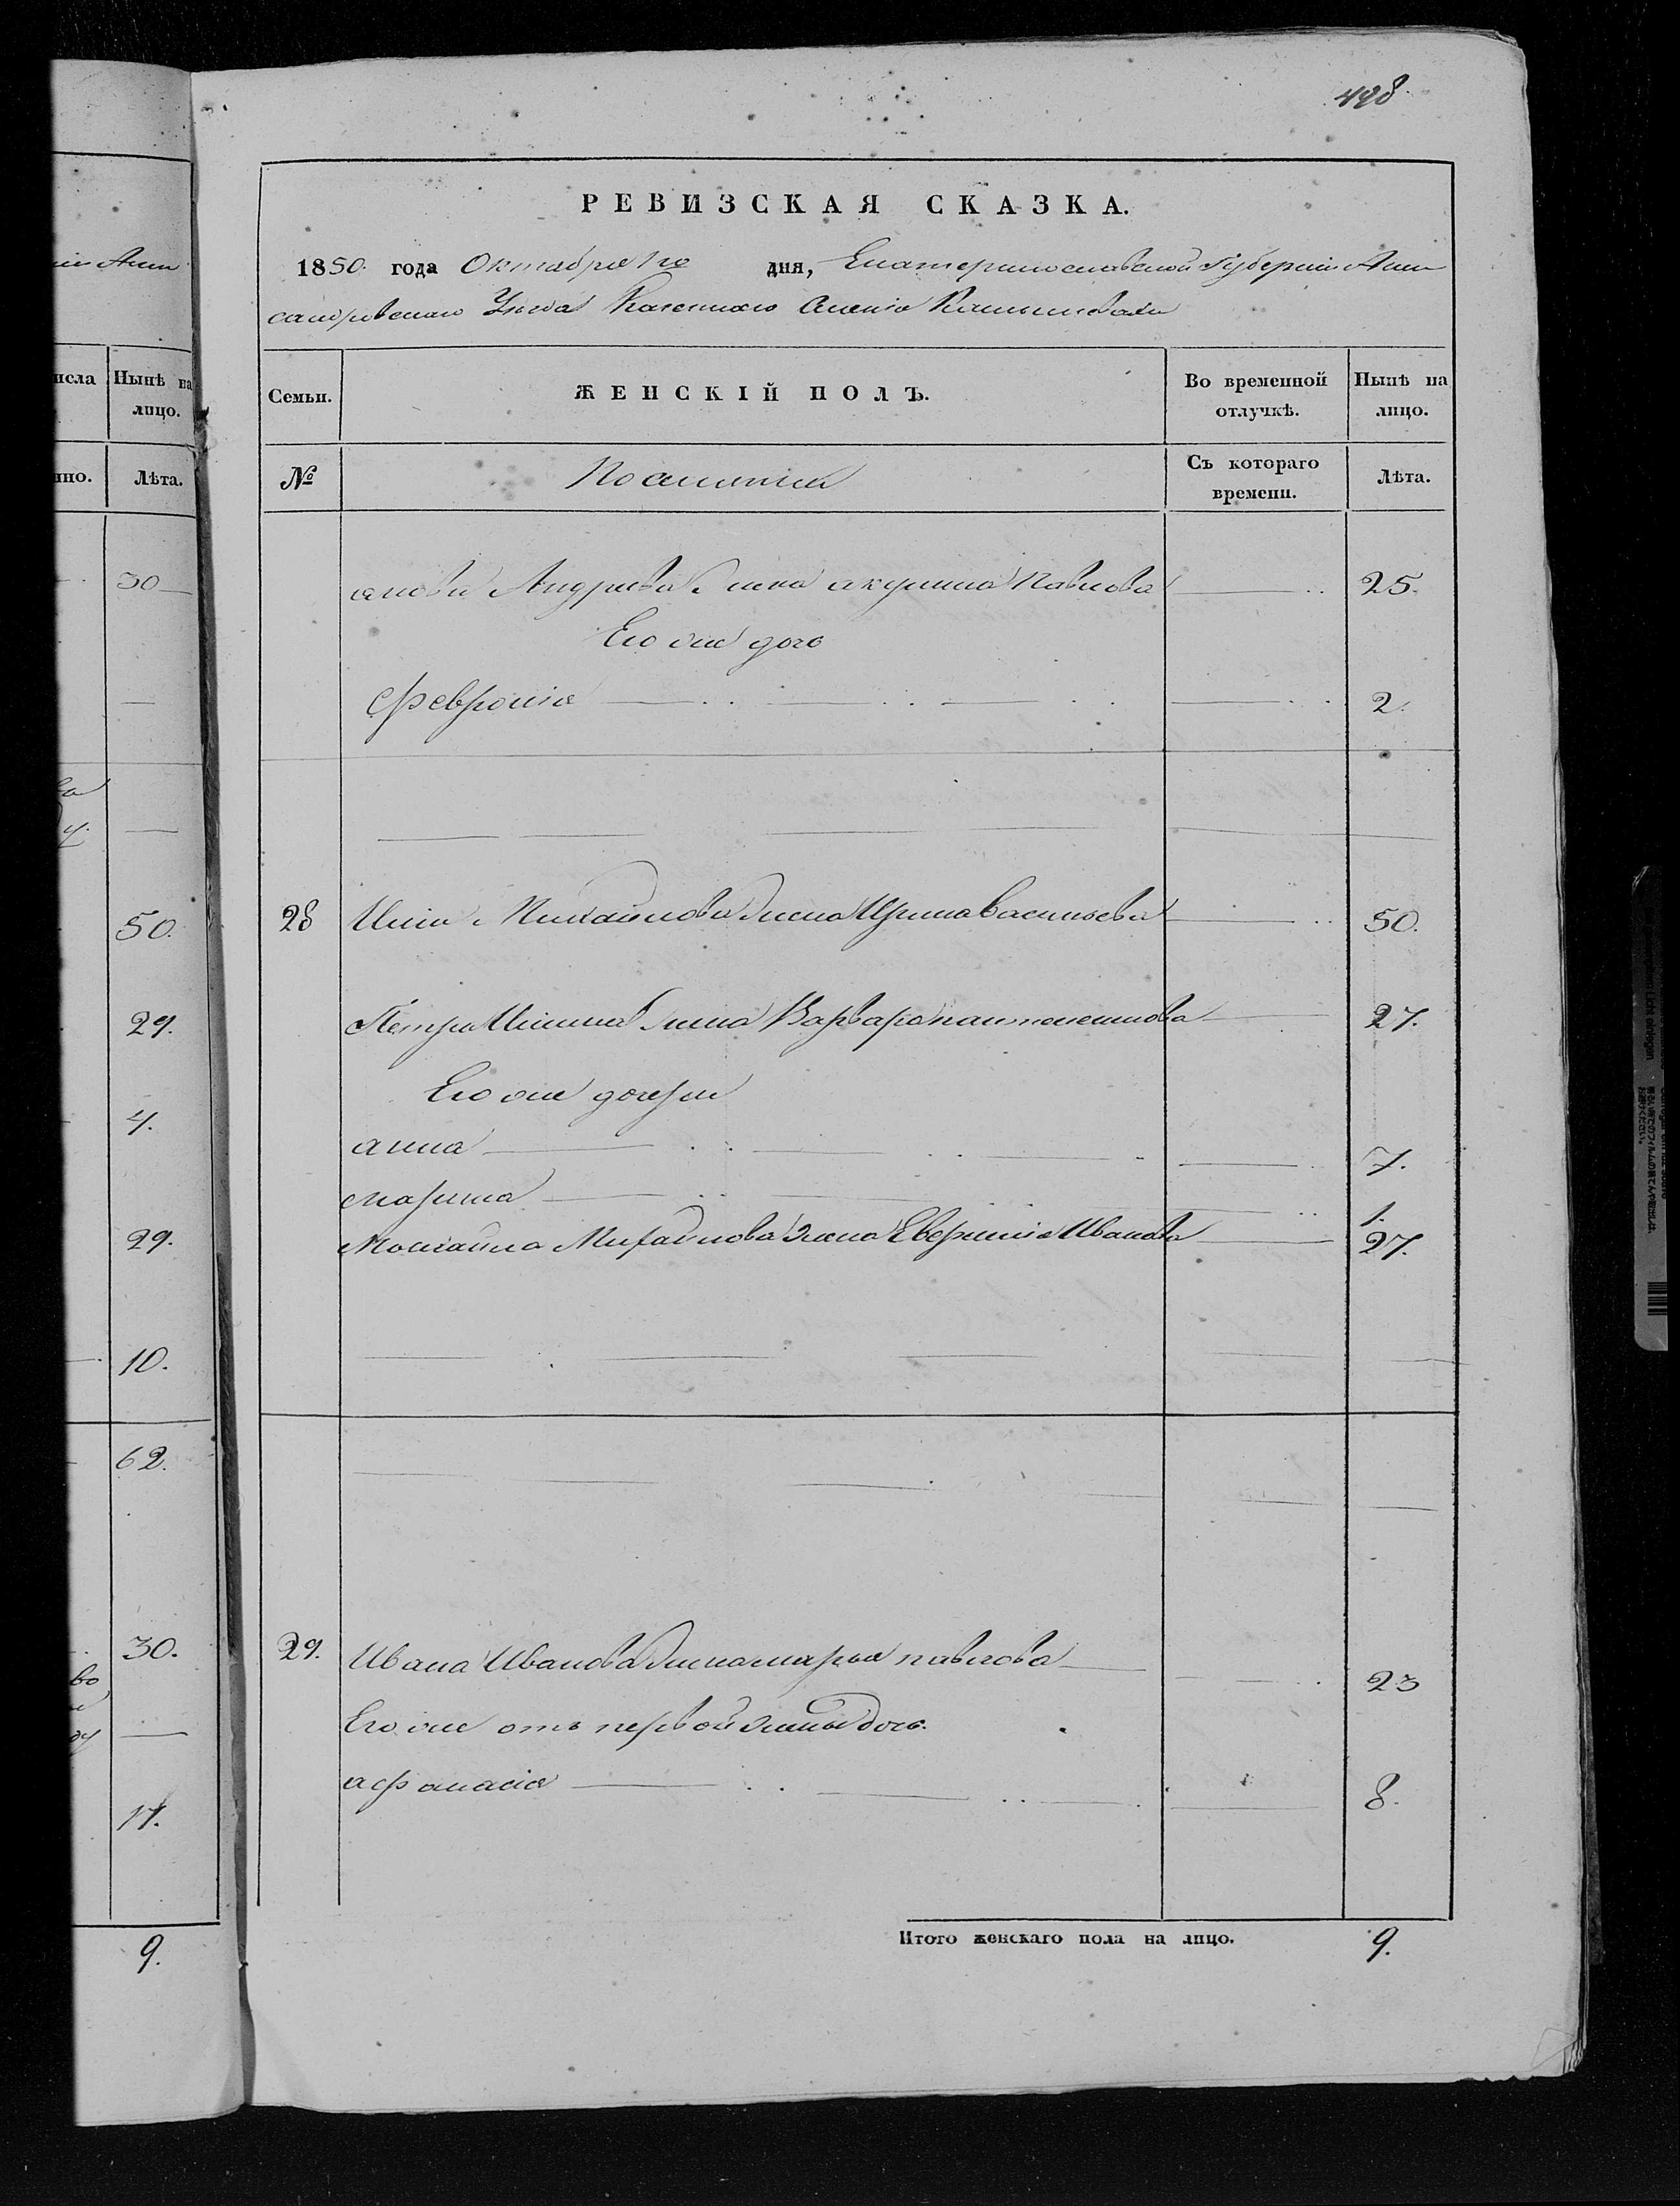 498
РЕВИЗСКАЯ СКАЗКА.
1850. года Октября дня, Екатеринославской Губернии Алек
сандровскаго Уезда Казеннаго Селения
Семьи.
ЖЕНСКІЙ ПОЛЪ.
Во временной отлучкѣ.
Нынѣ на лицо.
№
Поселянки
Съ котораго времени.
Лѣта.
Андреева жена акулина Павлова 25.
Его же дочь
Феврония 2.
28 Михайлова жена Ирина васильева 50.
Петра жена Варвара пантелемонова 27.
Его же дочери
анна 7.
марина 1.
Михайлова жена Иванова 27.
29. Ивана Иванова жена марья павлова 23
Его же отъ первой жены дочь.
афанасия 8.
Итого женскаго пола на лицо. 9.
исла
Нынѣ на лицо.
нно.
Лѣта.
30
50.
29.
4.
29.
10.
62.
30.
во
17.
9.